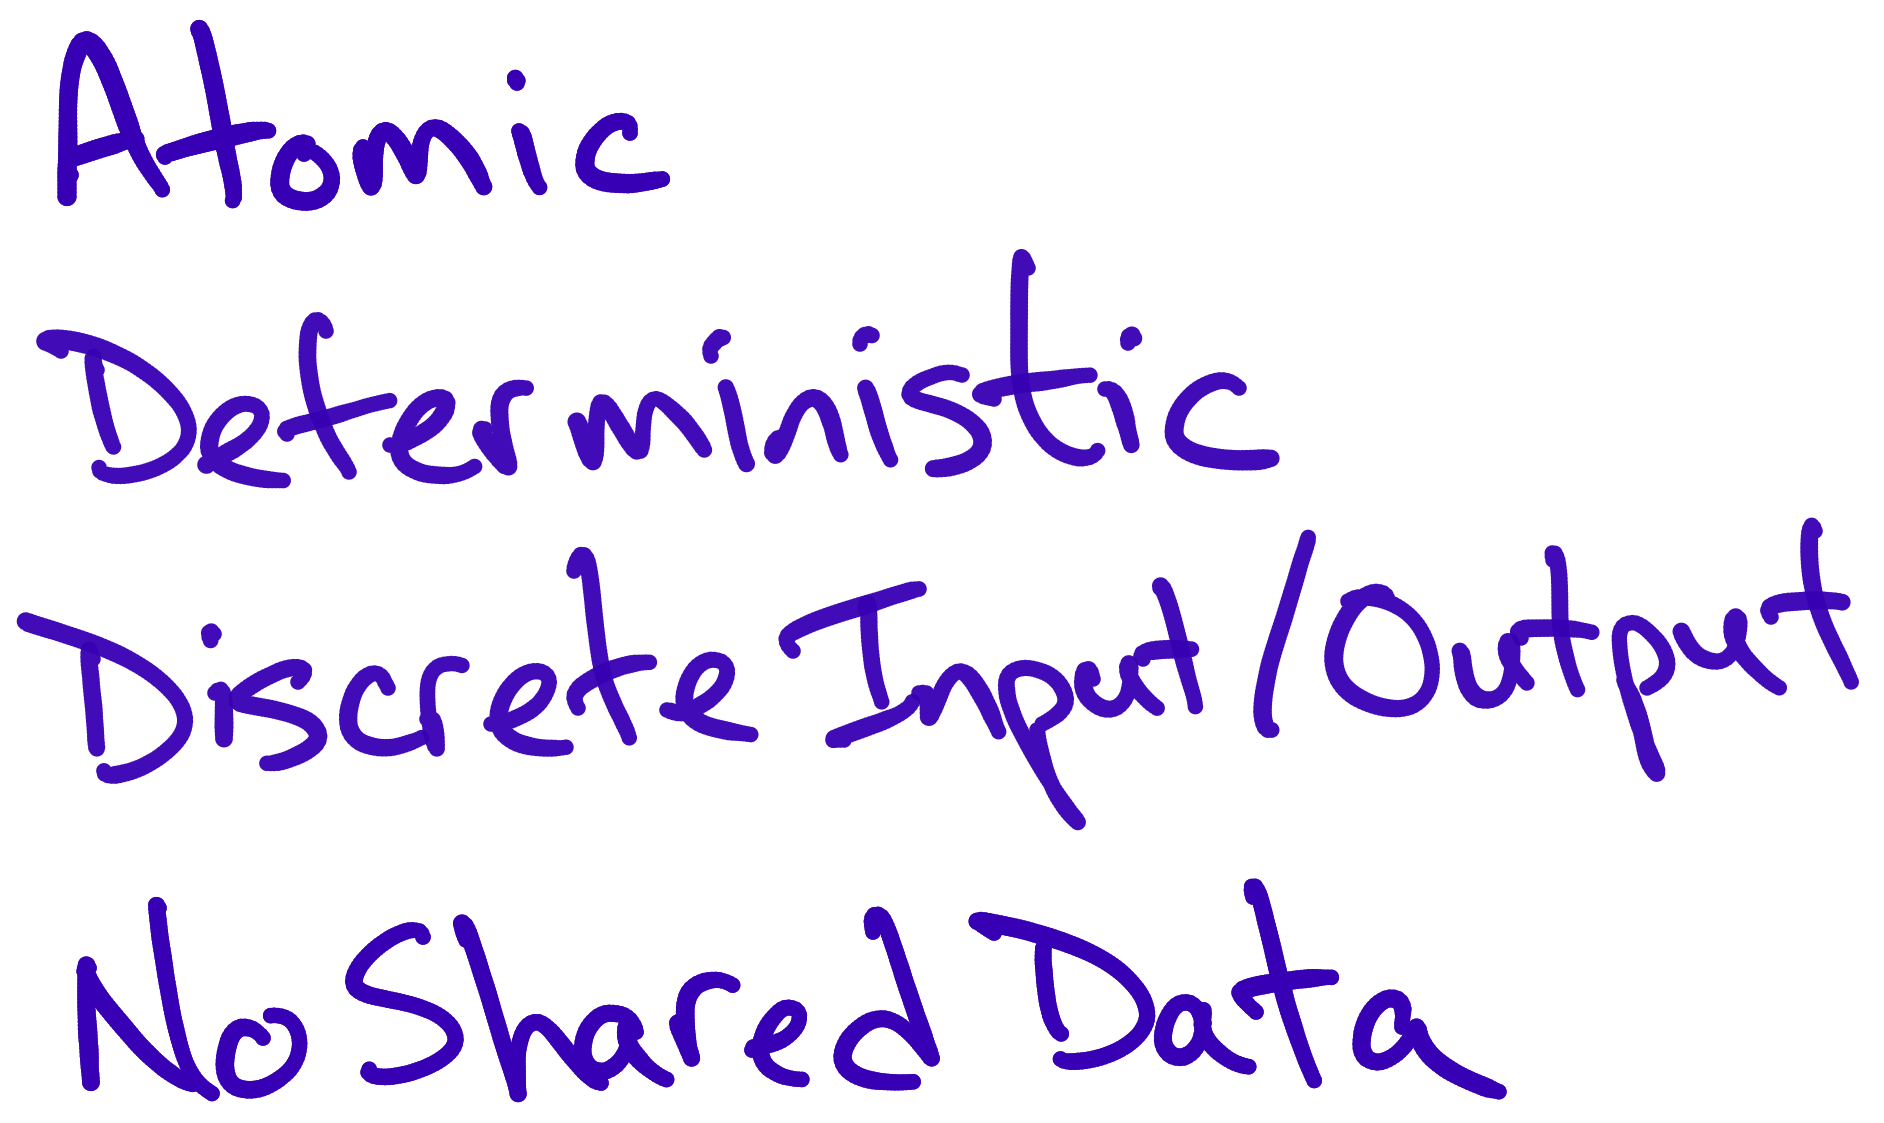 Atomic
Deterministic
Discrete Input/Output
No Shared Data